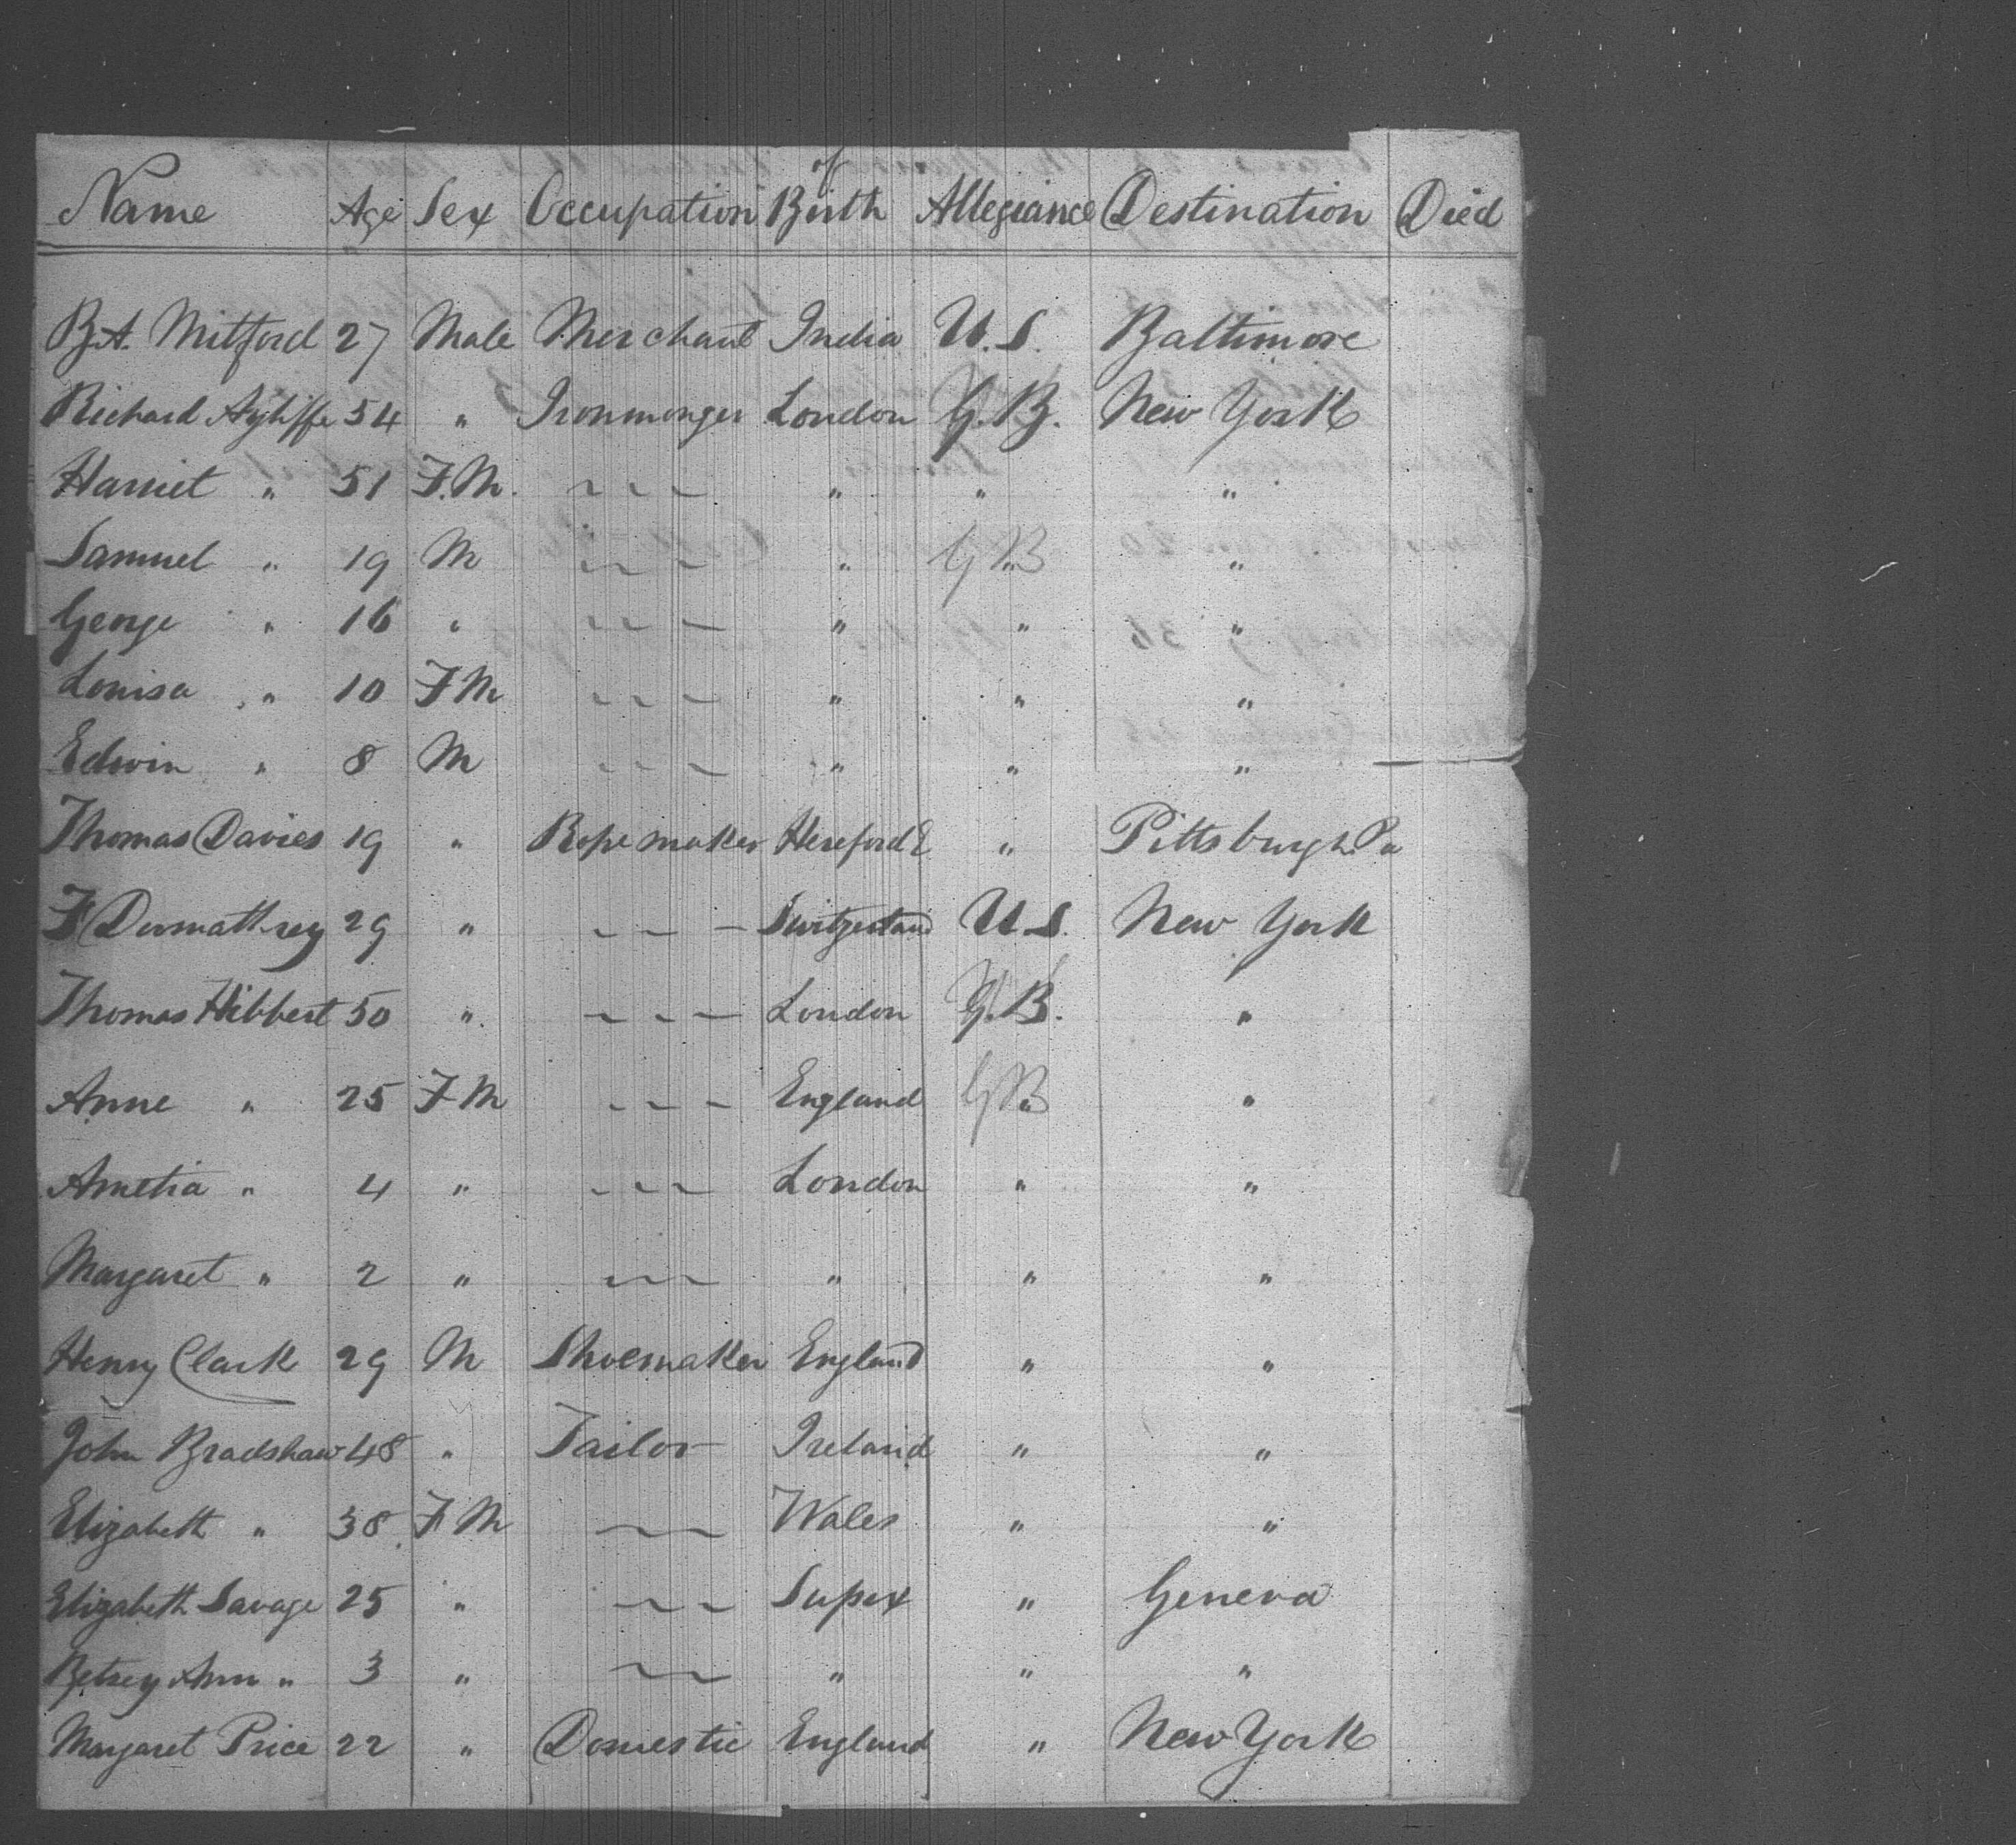 Name Age Sex Occupation of Birth Allegiance Destination Died
B.A. Mitford 27 Male Merchant India U.S. Baltimore
Richard Ayliffe 54 " Ironmonger London G.B. New York
Harriet " 51 F.M. ~ ~ ~ " " "
Samuel " 19 M ~ ~ ~ " GB "
George " 16 " ~ ~ ~ " " "
Louisa " 10 FM ~ ~ ~ " " "
Edwin " 8 M ~ ~ ~ " " "
Thomas Davies 19 " Rope maker Hereford E " Pittsburgh Pa
F 29 " ~ ~ ~ Switzerland U.S. New York
Thomas Hibbert 50 " ~ ~ ~ London G.B. "
Anne " 25 FM ~ ~ ~ England GB "
Amelia " 4 " ~ ~ ~ London " "
Margaret " 2 " ~ ~ ~ " " "
Henry Clark 29 M Shoemaker England " "
John Bradshaw 48 " Tailor Ireland " "
Elizabeth " 38 FM ~ ~ Wales " "
Elizabeth Savage 25 " ~ ~ Sussex " Geneva
Betsey Ann " 3 " ~ ~ " " "
Margaret Price 22 " Domestic England " New York